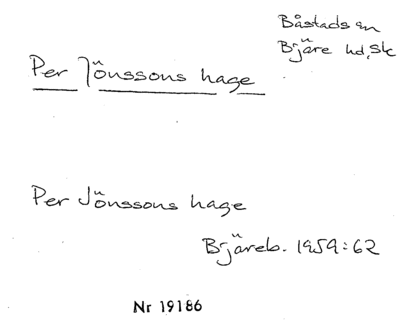 Båstads sn
Bjäre hd, Sk
Per Jönssons hage
Per Jönssons hage
Bjäreb. 1959:62
Nr 19186